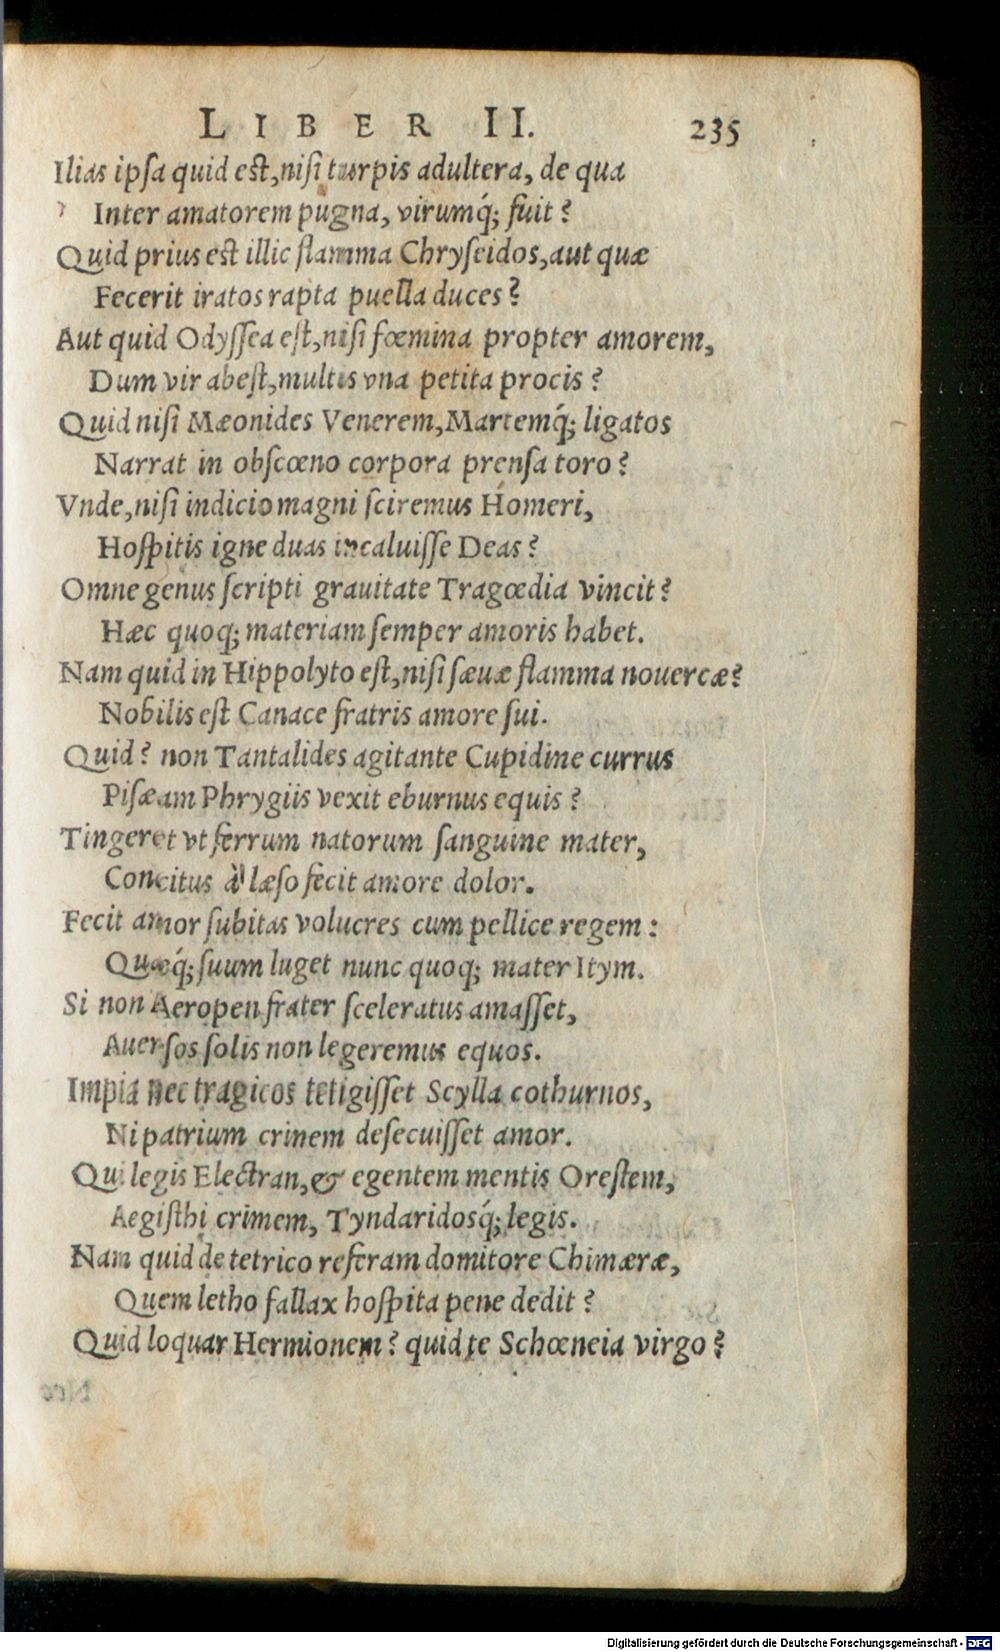 LIBER II. 235
Ilias ipsa quid est, nisi turpis adultera, de qua
Inter amatorem pugna, virumq́; fuit?
Quid prius est illic flamma Chryseidos, aut quæ
Fecerit iratos rapta puella duces?
Aut quid Odyssea est, nisi fœmina propter amorem,
Dum vir abest, multis vna petita procis?
Quid nisi Mæonides Venerem, Martemq́; ligatos
Narrat in obscœno corpora prensa toro?
Vnde, nisi indicio magni sciremus Homeri,
Hospitis igne duas incaluisse Deas?
Omne genus scripti grauitate Tragœdia vincit?
Hæc quoq; materiam semper amoris habet.
Nam quid in Hippolyto est, nisi sæuæ flamma nouercæ?
Nobilis est Canace fratris amore sui.
Quid? non Tantalides agitante Cupidine currus
Pisæam Phrygiis vexit eburnus equis?
Tingeret vt ferrum natorum sanguine mater,
Concitus à læso fecit amore dolor.
Fecit amor subitas volucres cum pellice regem:
Quæq́; suum luget nunc quoq; mater Itym.
Si non Aeropen frater sceleratus amasset,
Auersos solis non legeremus equos.
Impia nec tragicos tetigisset Scylla cothurnos,
Ni patrium crinem desecuisset amor.
Qui legis Electran, & egentem mentis Orestem,
Aegisthi crimem, Tyndaridosq́; legis.
Nam quid de tetrico referam domitore Chimæræ,
Quem letho fallax hospita pene dedit?
Quid loquar Hermionem? quid te Schœneia virgo?
Digitalisierung gefördert durch die Deutsche Forschungsgemeinschaft - DFG